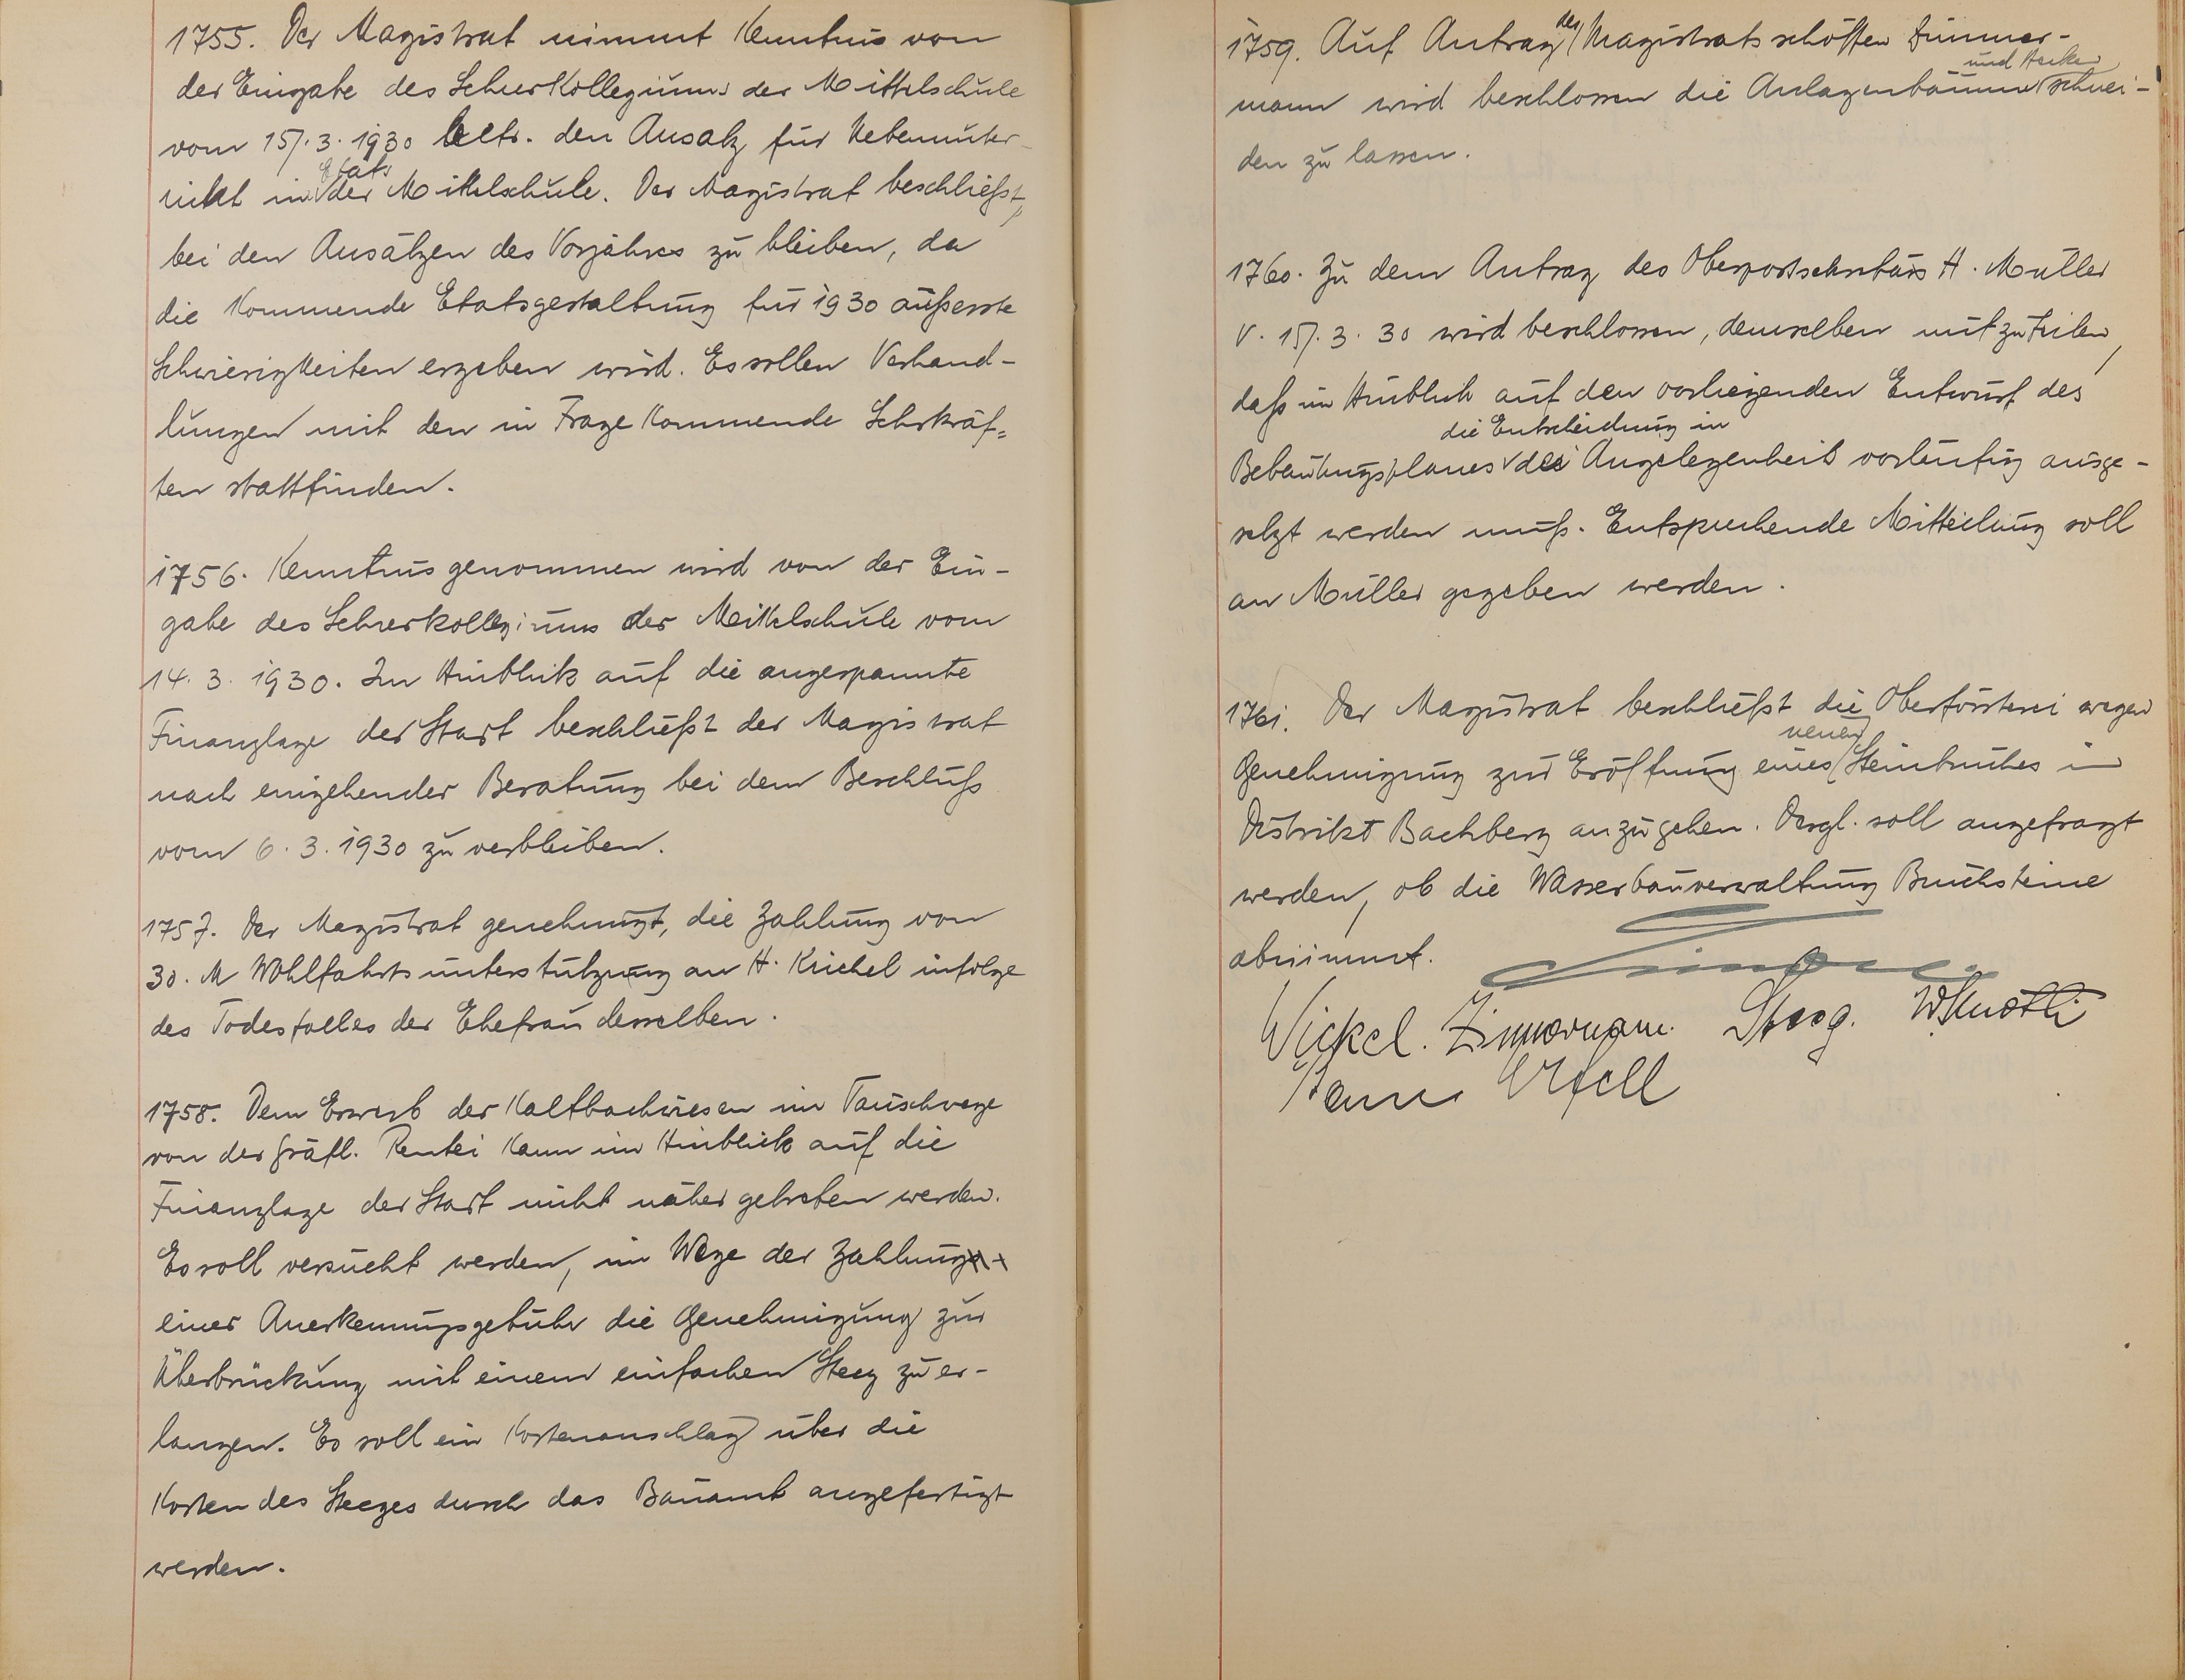 1755. Der Magistrat nimmt Kenntnis von
der Eingabe des Lehrerkollegiums der Mittelschule
vom 15. 3. 1930 betr. den Ansatz für Nebenunter-
richt im Etats der Mittelschule. Der Magistrat beschließt,
bei den Ansätzen des Vorjahres zu bleiben, da
die kommende Etatsgestaltung für 1930 äußerste
Schwierigkeiten ergeben wird. Es sollen Verhand-
lungen mit den in Frage kommende Lehrkräf=
ten stattfinden.
1756. Kenntnis genommen wird von der Ein-
gabe des Lehrerkollegiums der Mittelschule vom
14. 3. 1930. Im Hinblick auf die angespannte
Finanzlage der Stadt beschließt der Magistrat
nach eingehender Beratung bei dem Beschluß
vom 6. 3. 1930 zu verbleiben.
1757. Der Magistrat genehmigt, die Zahlung von
30. M Wohlfahrtsunterstützung an H. Krichel infolge
des Todesfalles der Ehefrau desselben.
1758. Dem Erwerb der Kaltbachwiesen im Tauschwege
von der gräfl. Rentei kann im Hinblick auf die
Finanzlage der Stadt nicht näher getreten werden.
Es soll versucht werden, im Wege der Zahlung
einer Anerkennungsgebühr die Genehmigung zur
Überbrückung mit einem einfachen Steeg zu er-
langen. Es soll ein Kostenanschlag über die
Kosten des Steeges durch das Bauamt angefertigt
werden.
1759. Auf Antrag des Magistratsschöffen Zimmer-
mann wird beschlossen die Anlagenbäume und Hecken schnei-
den zu lassen.
1760. Zu dem Antrag des Oberpostsekretärs H. Müller
v. 15. 3. 30 wird beschlossen, demselben mitzuteilen,
daß im Hinblick auf den vorliegenden Entwurf des
Bebauungsplanes die Entscheidung in der Angelegenheit vorläufig ausge-
setzt werden muß. Entsprechende Mitteilung soll
an Müller gegeben werden.
1761. Der Magistrat beschließt die Oberförsterei wegen
Genehmigung zur Eröffnung eines neuen Steinbruches im
Distrikt Bachberg anzugehen. Desgl. soll angefragt
werden, ob die Wasserbauverwaltung Bruchsteine
abnimmt.
Wickel. Zimmermann. Steeg.